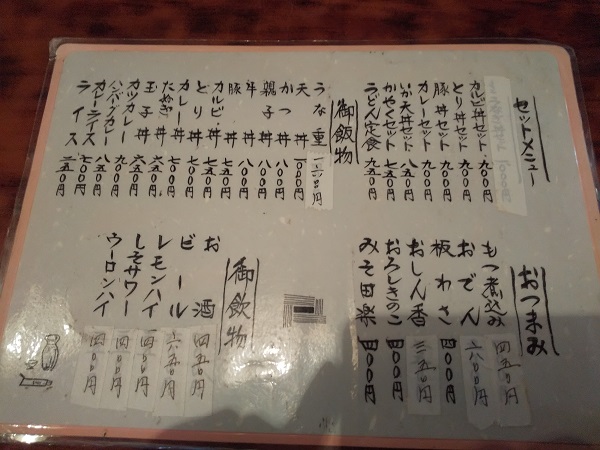 セットメニュー
カルビ丼セット 九〇〇円
とり丼セット 九〇〇円
豚丼セット 九〇〇円
カレーセット 九〇〇円
いか天丼セット 八五〇円
かやくセット 七五〇円
うどん定食 九五〇円
御飯物
うな重
天丼 一〇〇〇円
かつ丼 八〇〇円
親子丼 八〇〇円
牛丼 八〇〇円
豚丼 七五〇円
カルビ丼 七五〇円
とり丼
カレー丼 七〇〇円
たぬき丼 六五〇円
玉子丼 六五〇円
カツカレー 九〇〇円
ハンバーグカレー
カレーライス 七〇〇円
ライス 二五〇円
おつまみ
もつ煮込み 四五〇円
おでん 六〇〇円
板わさ 四〇〇円
おしん香 三五〇円
おろしきのこ 四〇〇円
みそ田楽 四〇〇円
御飲物
お酒 四五〇円
ビール 六五〇円
レモンハイ 四〇〇円
しそサワー 四〇〇円
ウーロンハイ 四〇〇円